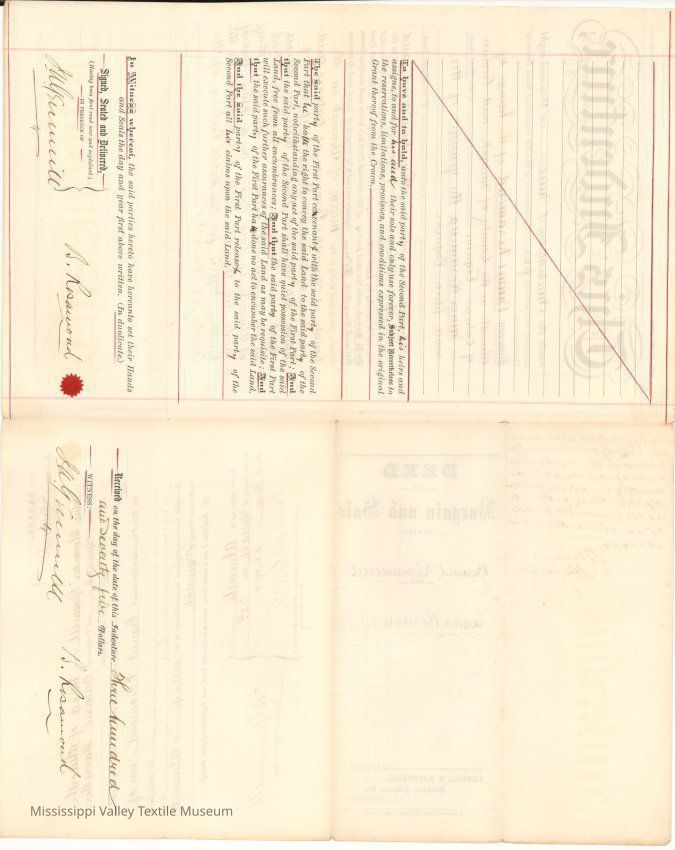 To have and to hold, unto the said party of the Second Part, his heirs and
assigns, to and for his and their sole and only use forever, Subject Nevertheless to
the reservations, limitations, provisoes, and conditions expressed in the original
Grant thereof from the Crown.
The said party of the First Part covenants with the said party of the Second
Part that he hath the right to convey the said Land to the said party of the
Second Part, notwithstanding any act of the said party of the First Part; And
that the said party of the Second Part shall have quiet possession of the said
Land, free from all encumbrances; And that the said party of the First Part
will execute such further assurances of the said Land as may be requisite; And
that the said party of the First Part has done no act to encumber the said Land.
And the said party of the First Part releases to the said party of the
Second Part all his claims upon the said Land.
In Witness whereof, the said parties hereto have hereunto set their Hands
and Seals the day and year first above written. (In duplicate)
Signed, Sealed and Delivered,
(Having been first read over and explained,)
IN PRESENCE OF
B. Rosamond
Received on the day of the date of this Indenture Three hundred
and seventy five Dollars.
WITNESS:
B. Rosamond
DEED
Bargain and Sale
Mississippi Valley Textile Museum